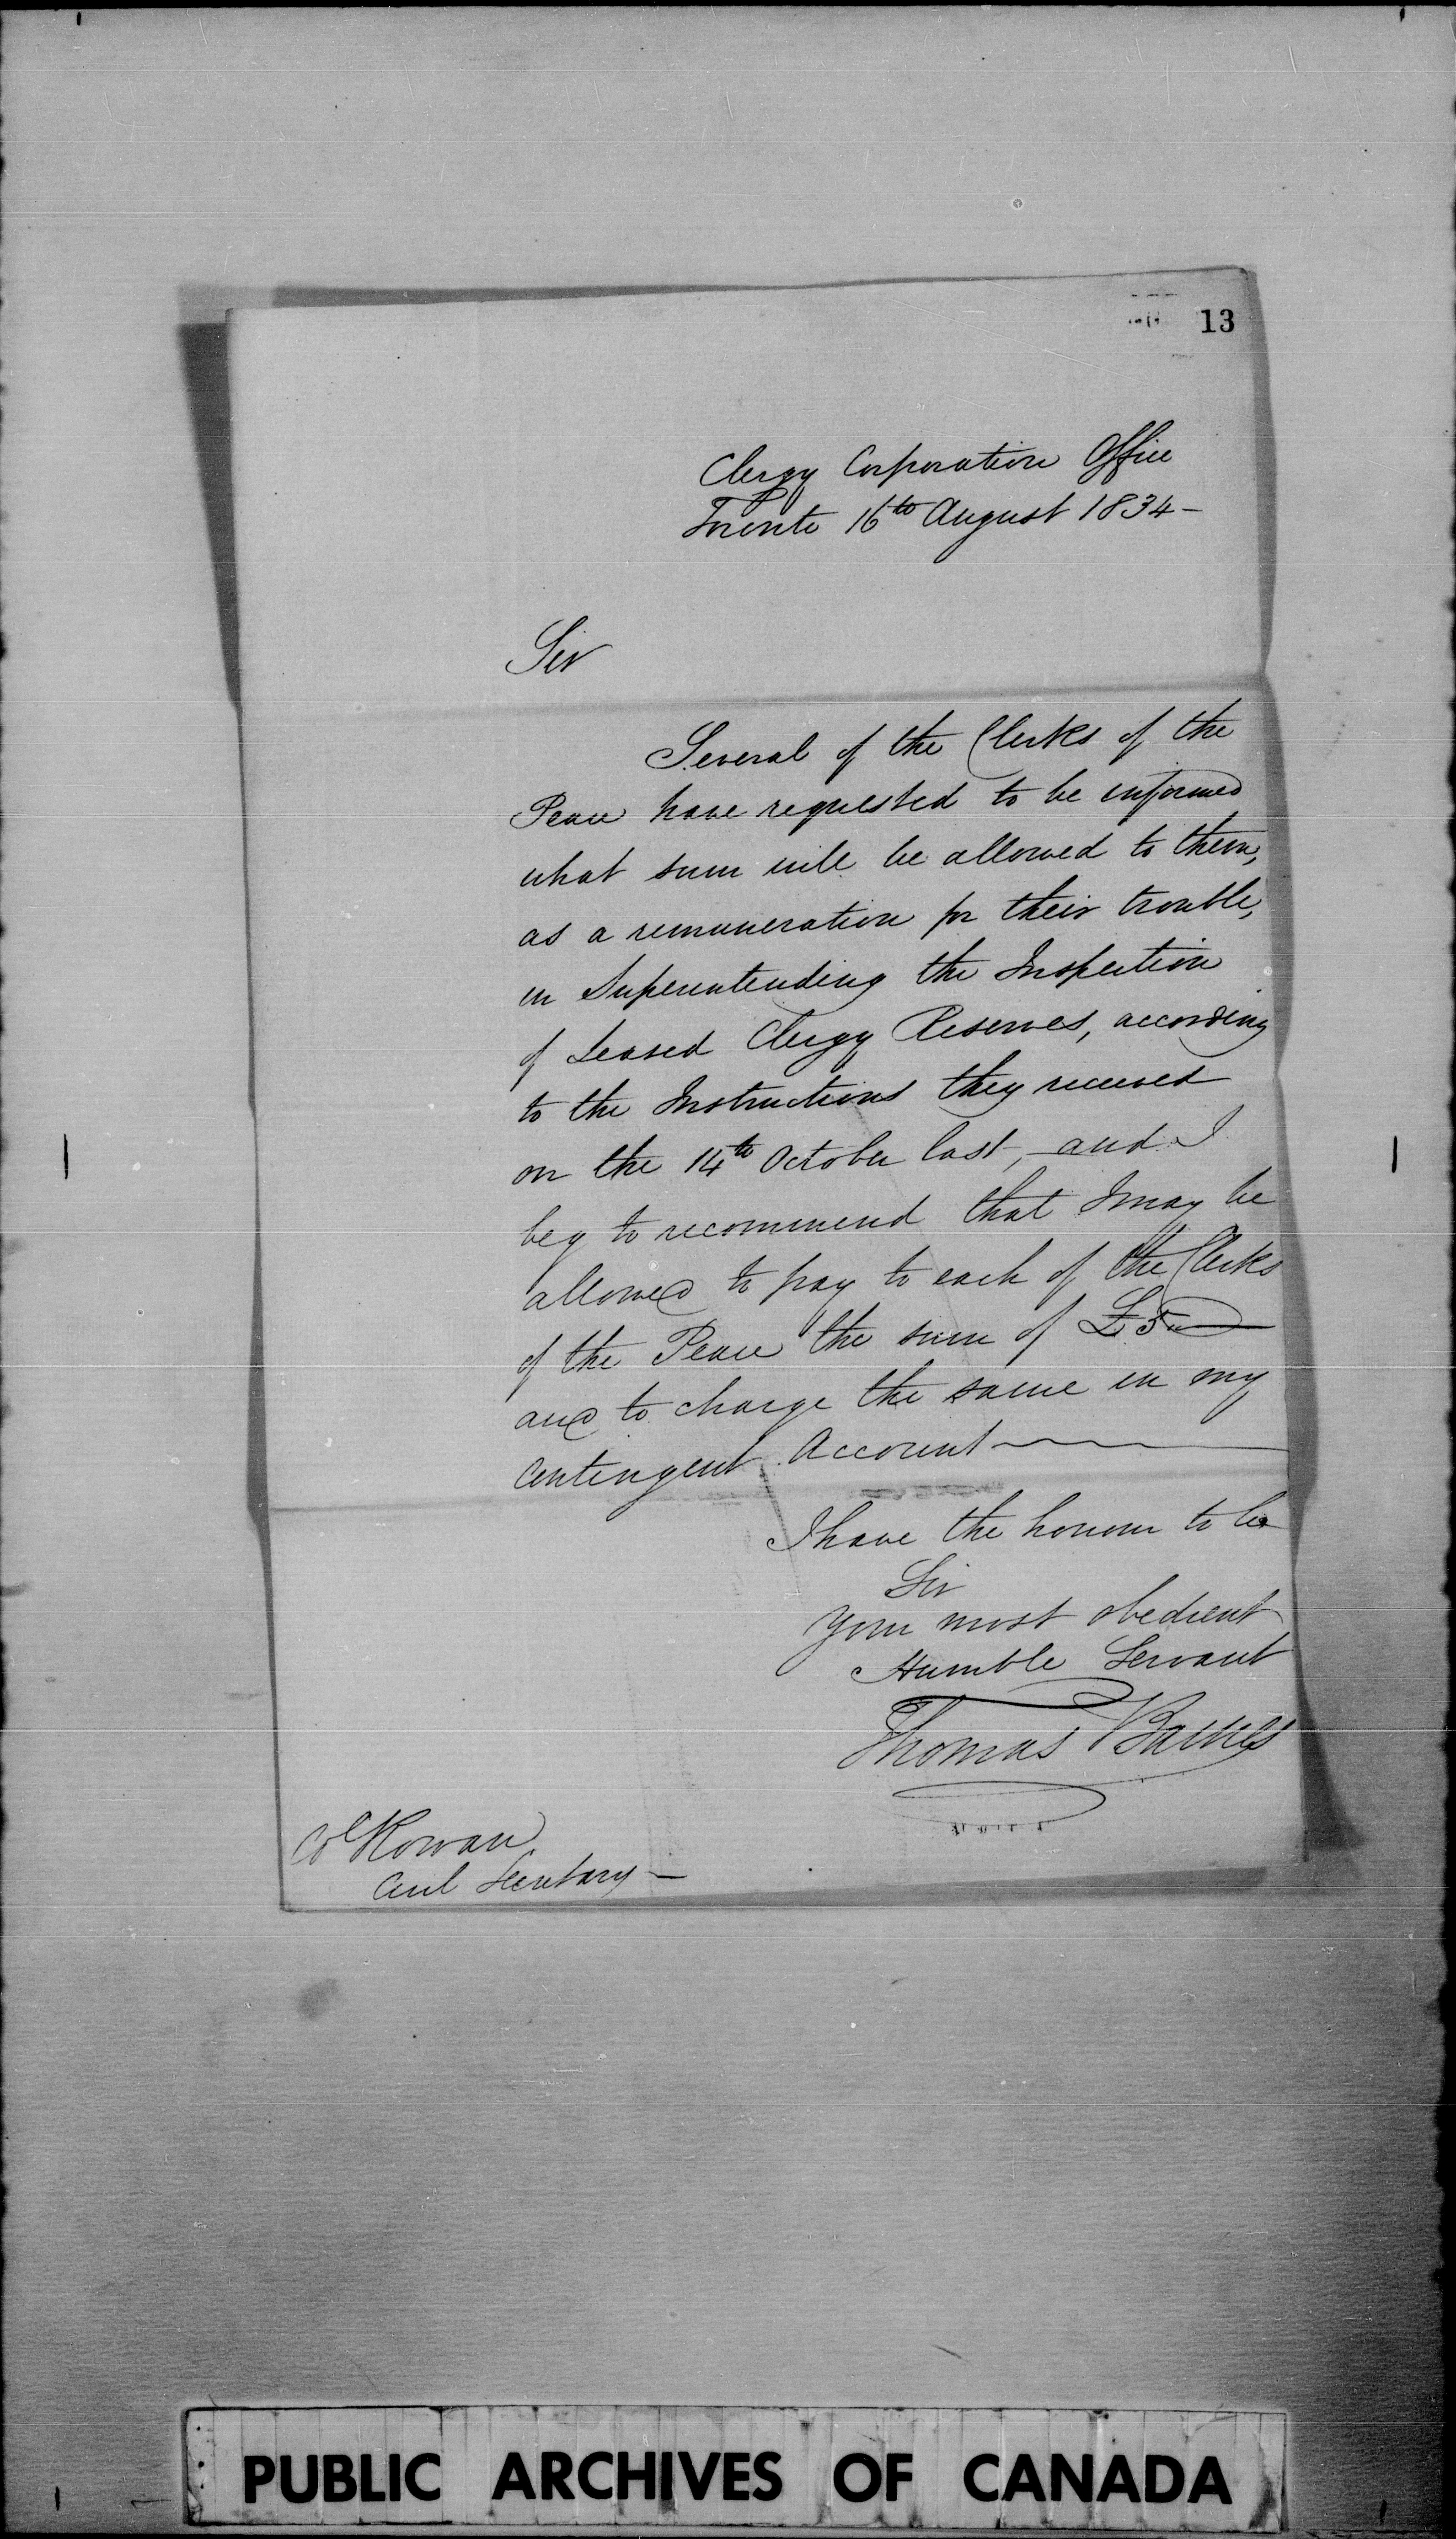 13
Clergy Corporation Office
Toronto 16th August 1834 -
Sir
Several of the Clerks of the
Peace have requested to be informed
what sum will be allowed to them,
as a remuneration for their trouble,
in Superintending the Inspection
of Leased Clergy Reserves, according
to the Instructions they received
on the 14th October last, and I
beg to recommend that I may be
allowed to pay to each of the Clerks
of the Peace the sum of £5
and to charge the same in my
Contingent Account
I have the honour to be
Sir
Your most obedient
Humble Servant
Thomas Baines
Col Rowan
Civil Secretary -
PUBLIC ARCHIVES OF CANADA